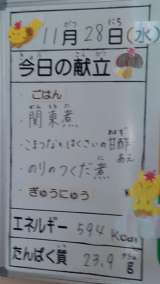 11月28日(水)
今日の献立
・ごはん
・関東煮
・こまつなとはくさいの甘酢あえ
・のりのつくだ煮
・ぎゅうにゅう
エネルギー 594 Kcal
たんぱく質 23.9 g